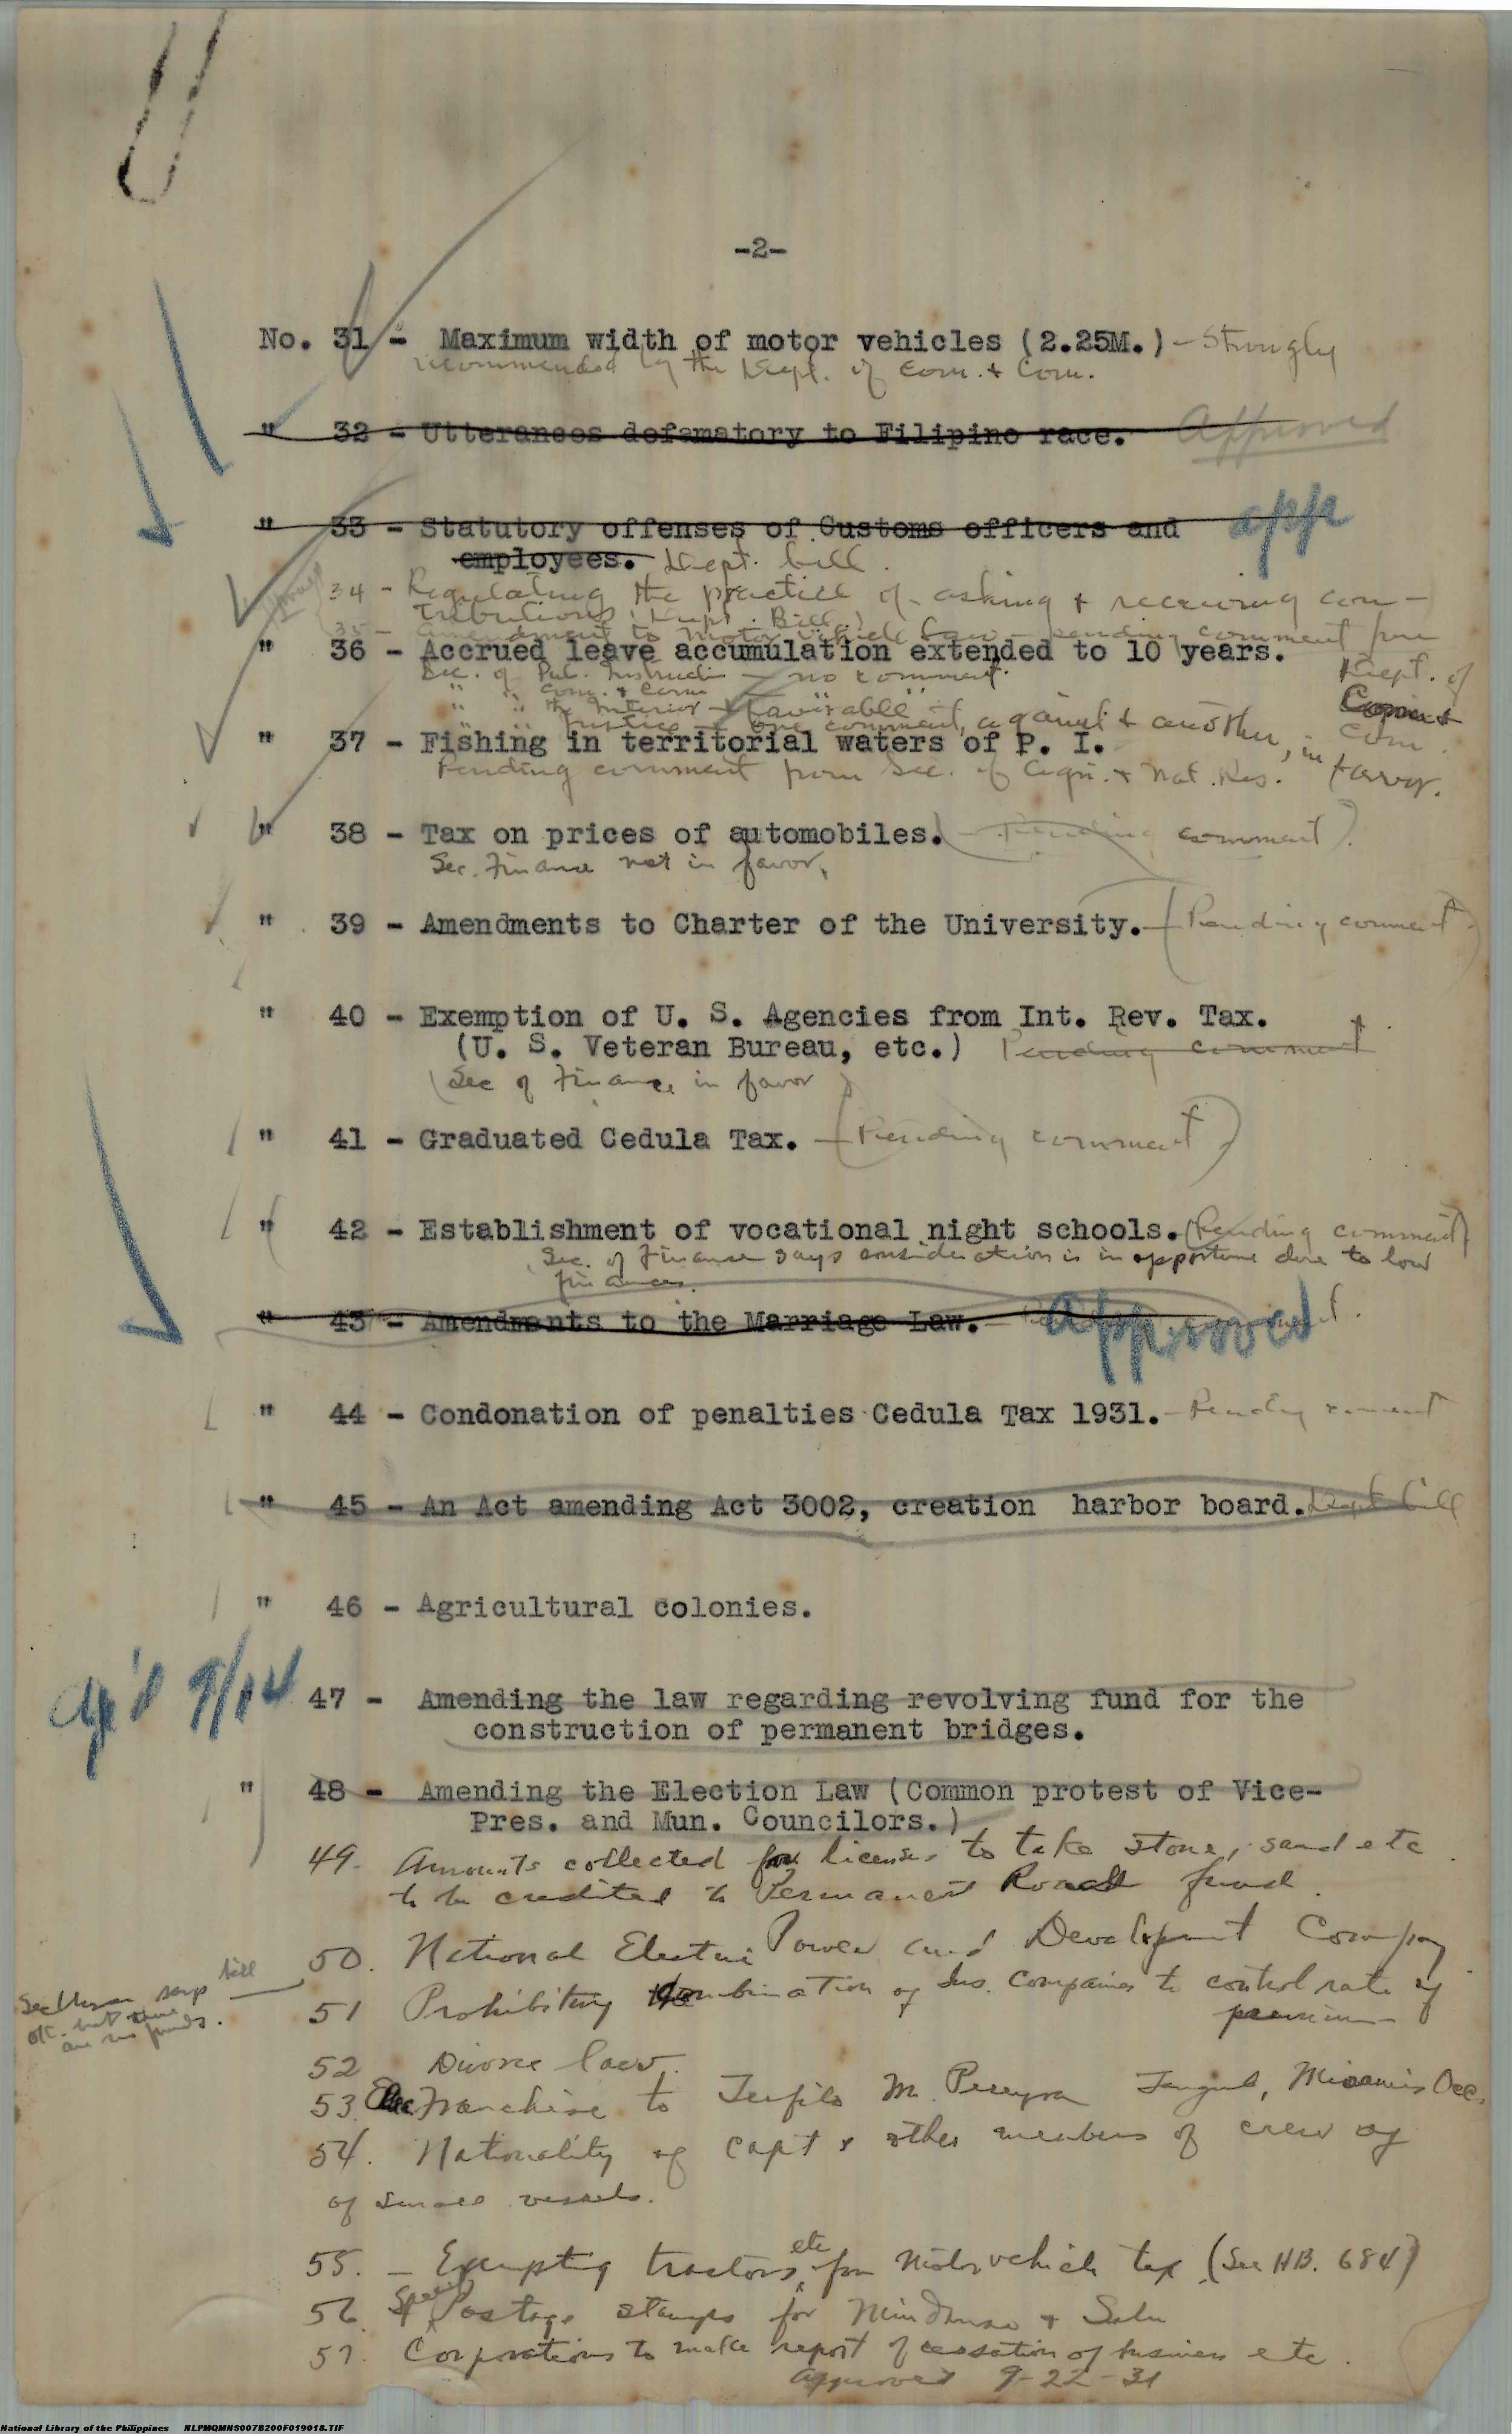 -2-
No. 31 - Maximum width of motor vehicles (2.25M.) - Strongly
recommended by the Dept. of Com. & Com.
" 32 - Utterances defamatory to Filipino race. Approved
" 33 - Statutory offenses of Customs officers and appr
employees. Dept. bill.
34 - Regulating the practice of asking & receiving con-
tributions (Dept. Bill.)
35 - amendment to motor vehicle law - pending comment from
Dept. of
Com. &
Com.
" 36 - Accrued leave accumulation extended to 10 years.
Sec. of Pub. Instruction - no comment.
" " Com. & Com
" " the Interior - favorable
" " Justice - one comment, against & another, in favor.
" 37 - Fishing in territorial waters of P. I.
Pending comment from Sec. of Agri. & Nat. Res.
" 38 - Tax on prices of automobiles. (Pending comment)
Sec. Finance not in favor.
" 39 - Amendments to Charter of the University. - (Pending comment)
" 40 - Exemption of U. S. Agencies from Int. Rev. Tax.
(U. S. Veteran Bureau, etc.) Pending comment
(Sec of Finance in favor)
" 41 - Graduated Cedula Tax. - (Pending comment)
" 42 - Establishment of vocational night schools. (Pending comment)
Sec. of Finance says consideration is inopportune due to low
finances.
" 43 - Amendments to the Marriage Law. - Approved
" 44 - Condonation of penalties Cedula Tax 1931. - Pending comment
" 45 - An Act amending Act 3002, creation harbor board. Dept bill
" 46 - Agricultural colonies.
Ap'd 9/14
47 - Amending the law regarding revolving fund for the
construction of permanent bridges.
" 48 - Amending the Election Law (Common protest of Vice-
Pres. and Mun. Councilors.)
49. Amounts collected for licenses to take stone, sand etc.
to be credited to Permanent Road fund.
50. National Electric Power and Development Company
says bill
OK. but there
are no funds.
51 Prohibiting combination of Ins. Companies to control rate of
premium
52 Divorce law.
53. Elec Franchise to Teofilo M. Pereyra Misamis Occ.
54. Nationality of Capt & other members of crew of
of small vessels.
55. - Exempting tractors etc from Motor vehicle tax (See HB. 684)
56. Special Postage stamps for Mindanao & Sulu
57. Corporations to make report of cessation of business etc.
Approved 9-22-31
National Library of the Philippines NLPMQMNS007B200F019018.TIF